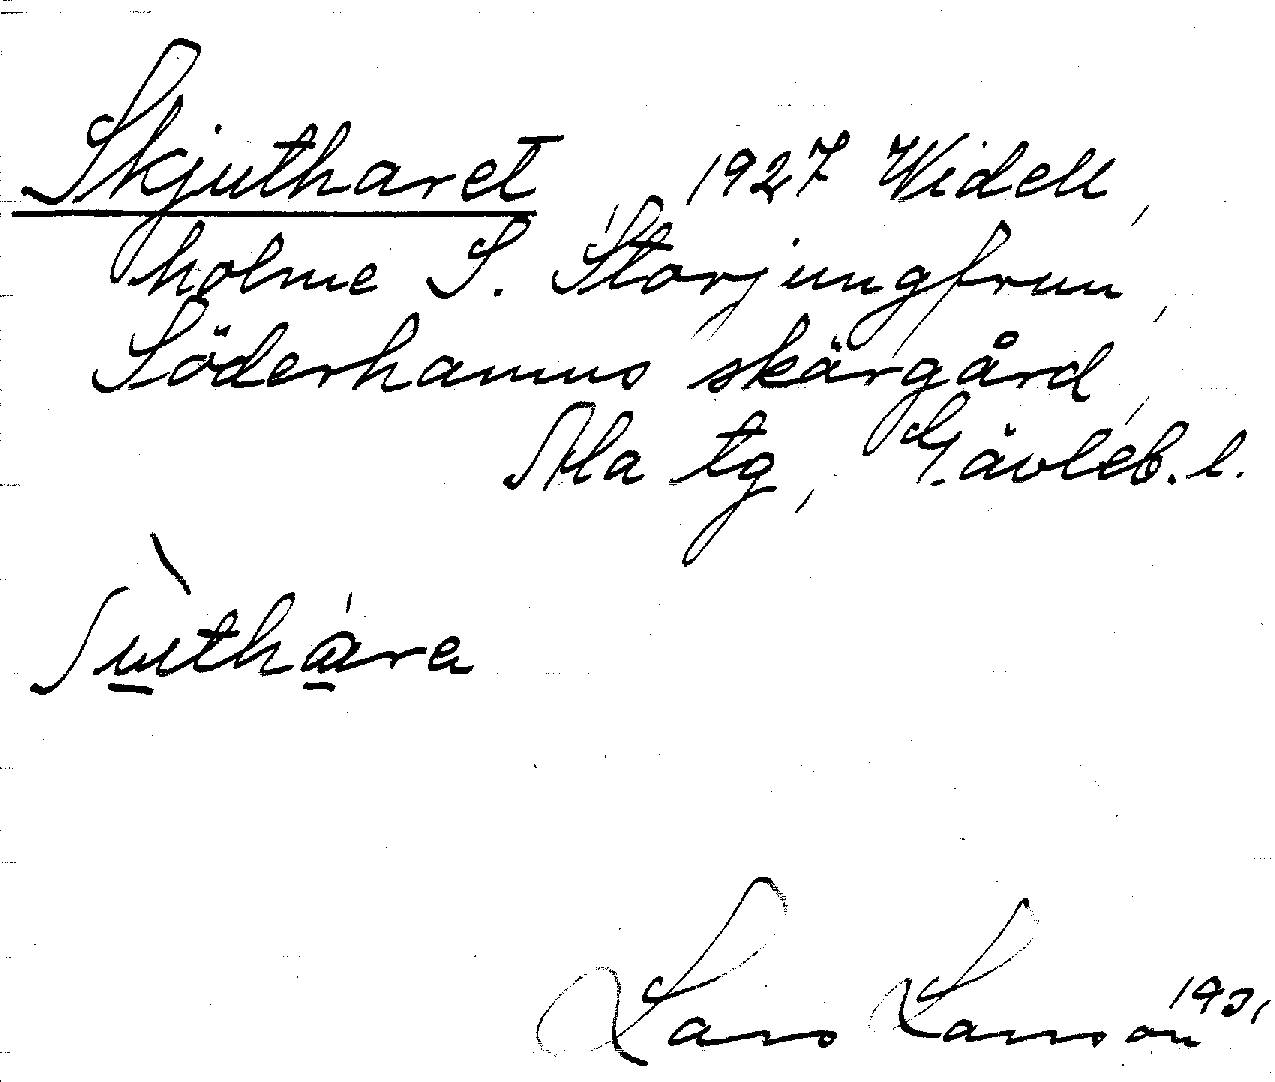 Skjutharet, 1927 Widell,
holme S. Storjungfrun,
Söderhamns skärgård,
Ala tg, Gävleb. l.
ʃùthára
Lars Larsson 1931